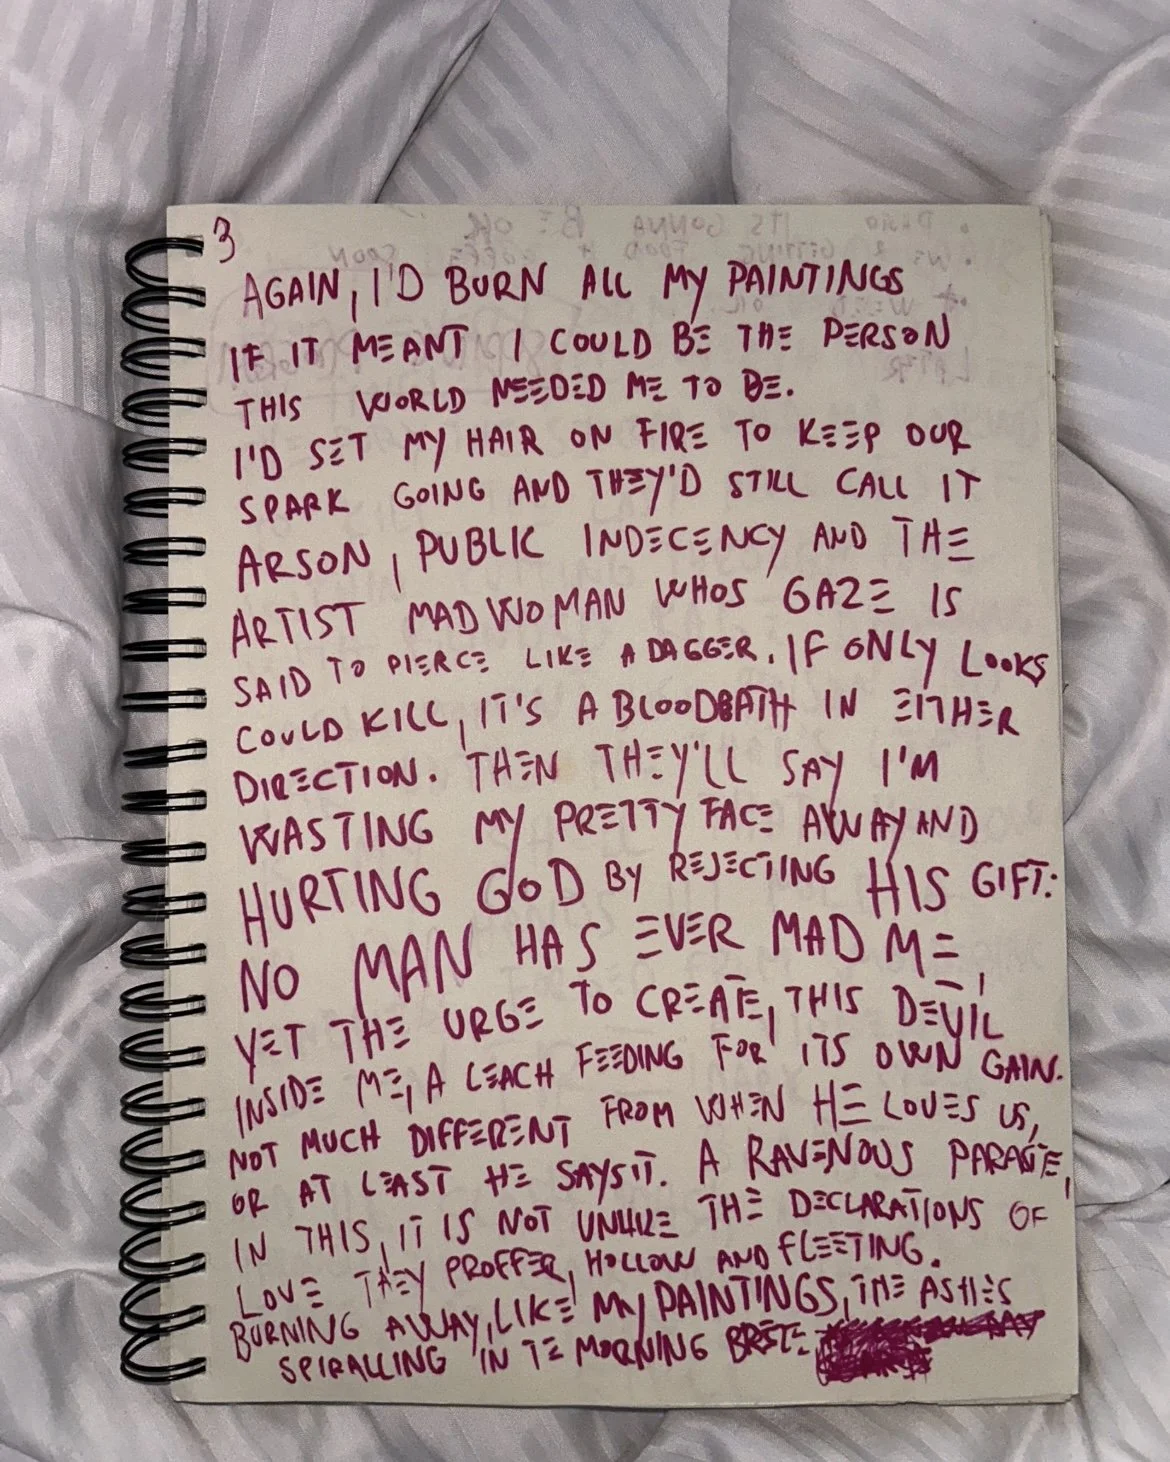 3
AGAIN, I'D BURN ALL MY PAINTINGS
IF IT MEANT I COULD BE THE PERSON
THIS WORLD NEEDED ME TO BE.
I'D SET MY HAIR ON FIRE TO KEEP OUR
SPARK GOING AND THEY'D STILL CALL IT
ARSON, PUBLIC INDECENCY AND THE
ARTIST MADWOMAN WHOS GAZE IS
SAID TO PIERCE LIKE A DAGGER. IF ONLY LOOKS
COULD KILL, IT'S A BLOODBATH IN EITHER
DIRECTION. THEN THEY'LL SAY I'M
WASTING MY PRETTY FACE AWAY AND
HURTING GOD BY REJECTING HIS GIFT:
NO MAN HAS EVER MAD ME,
YET THE URGE TO CREATE, THIS DEVIL
INSIDE ME, A LEACH FEEDING FOR ITS OWN GAIN.
NOT MUCH DIFFERENT FROM WHEN HE LOVES US,
OR AT LEAST HE SAYS IT. A RAVENOUS PARASITE,
IN THIS, IT IS NOT UNLIKE THE DECLARATIONS OF
LOVE THEY PROFFER, HOLLOW AND FLEETING.
BURNING AWAY, LIKE MY PAINTINGS, THE ASHES
SPIRALLING IN TE MORNING